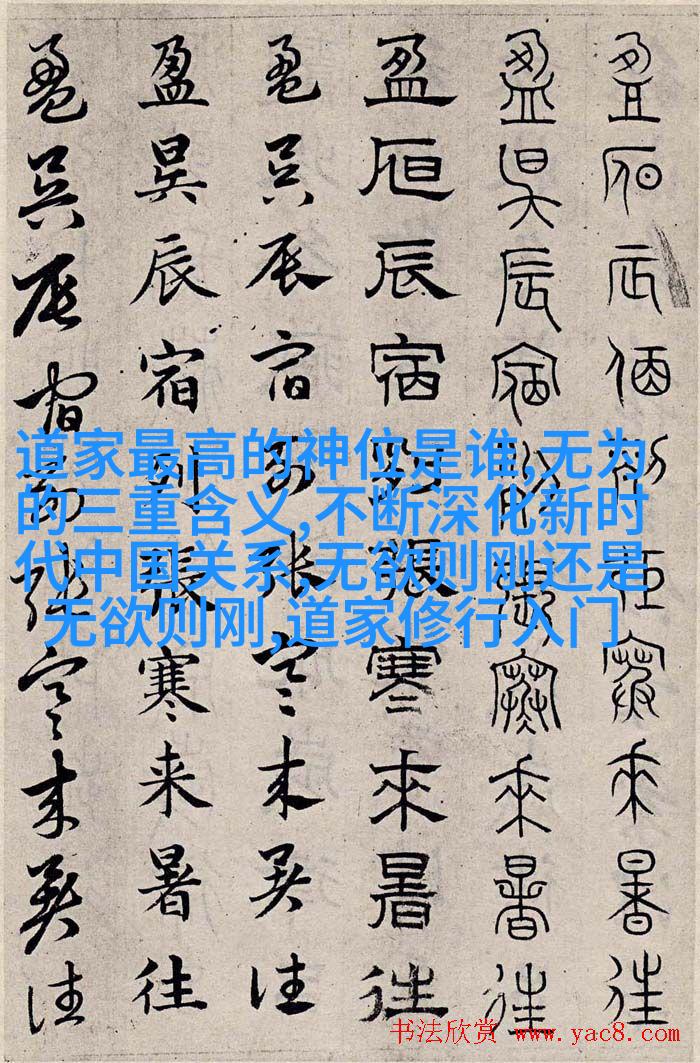 盈昃辰宿列張寒來暑往
盈昃辰宿列張寒來暑往
盈昃辰宿列張寒來暑往
盈昃辰宿列張寒来暑往
盈昃辰宿列張寒来暑往
盈昃辰宿列張寒来暑往
道家最高的神位是谁,无为
的三重含义,不断深化新时
代中国关系,无欲则刚还是
无欲则刚,道家修行入门
书法欣赏 www.yac8.com